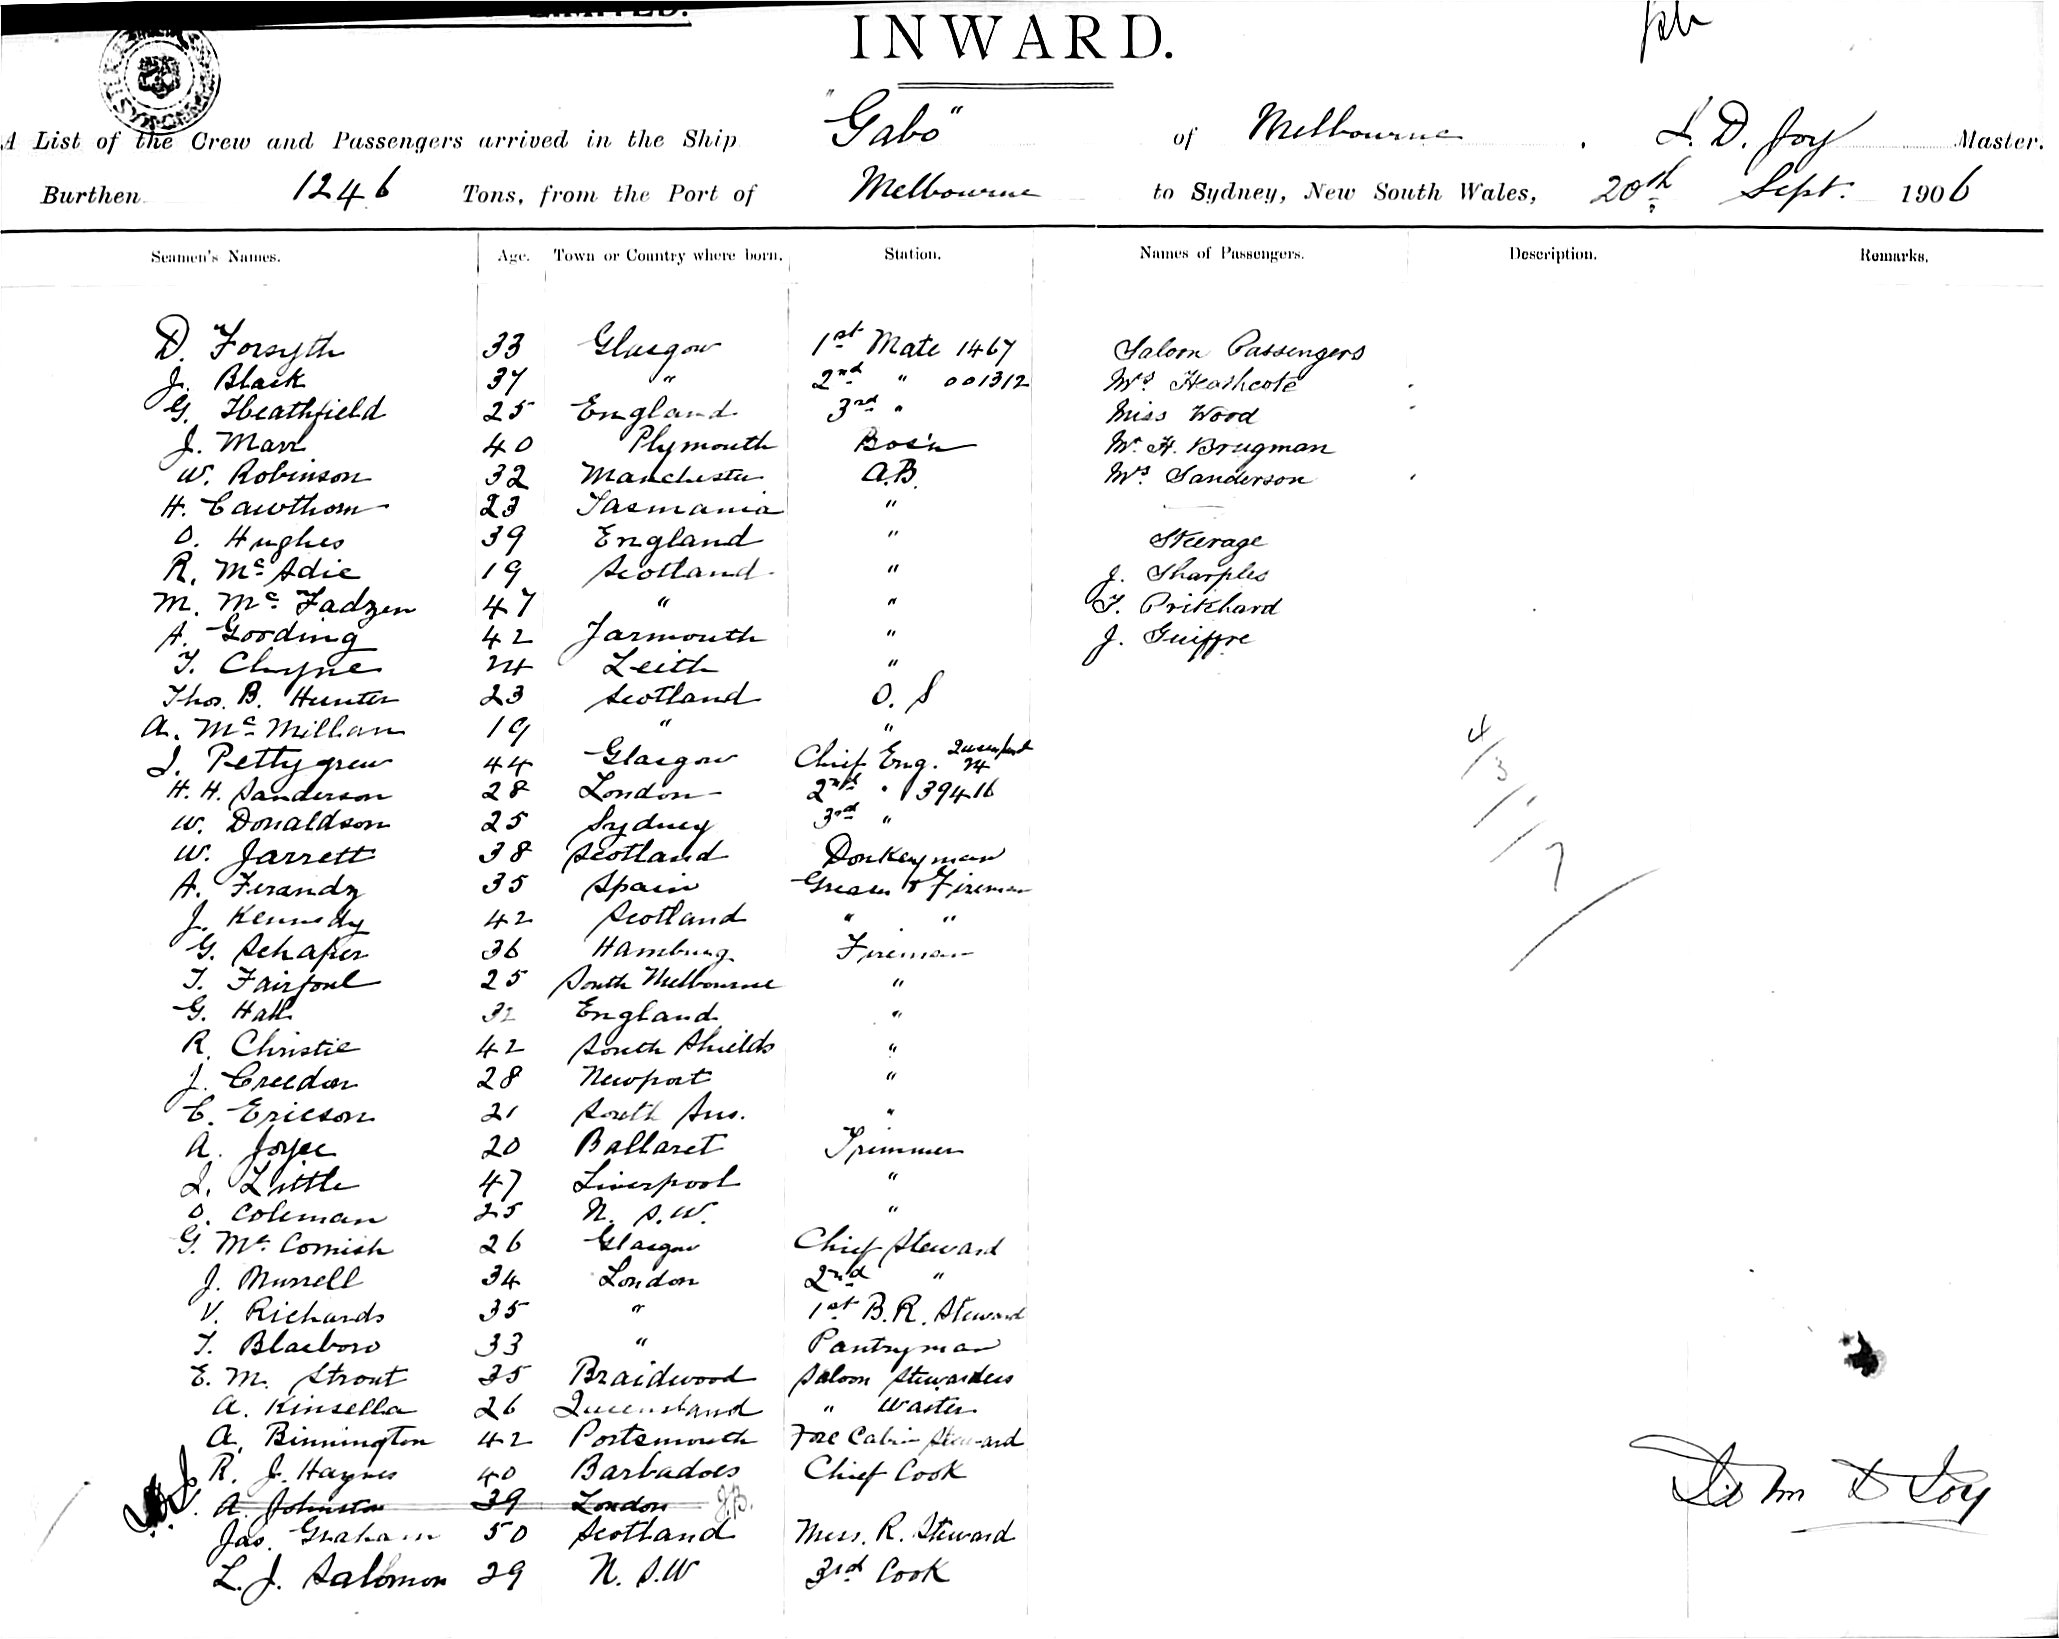 LIMITED.
INWARD.
A List of the Crew and Passengers arrived in the Ship "Gabo" of Melbourne, J. D. Joy Master.
Burthen 1246 Tons, from the Port of Melbourne to Sydney, New South Wales, 20th Sept. 1906
Seamen's Names. Age. Town or Country where born. Station. Names of Passengers. Description. Remarks.
D. Forsyth 33 Glasgow 1st Mate 1467 Saloon Passengers
J. Black 37 " 2nd " 001312 Mrs Heathcote
G. Heathfield 25 England 3rd " Miss Wood
J. Marr 40 Plymouth Bos'n Mr. H. Brugman
W. Robinson 32 Manchester A.B. Mrs. Sanderson
H. Cawthorn 23 Tasmania "
O. Hughes 39 England " Steerage
R. Mc Adie 19 Scotland " J. Sharples
M. Mc Fadzen 47 " " T. Pritchard
A. Gooding 42 Yarmouth " J. Guiffre
T. Chyne 24 Leith "
Thos. B. Hunter 23 Scotland O. S
A. Mc Millan 19 " "
J. Pettygrew 44 Glasgow Chief Eng. 24
H. H. Sanderson 28 London 2nd " 39416
W. Donaldson 25 Sydney 3rd "
W. Jarrett 38 Scotland Donkeyman
A. Ferandz 35 Spain Greaser & Fireman
J. Kennedy 42 Scotland " "
G. Schafer 36 Hamburg Fireman
T. Fairfoul 25 South Melbourne "
G. Hall 32 England "
R. Christie 42 South Shields "
J. Creedon 28 Newport "
C. Ericson 21 South Aus. "
A. Joyce 20 Ballaret Trimmer
J. Little 47 Liverpool "
O. Coleman 25 N. S.W. "
G. Mc Cornish 26 Glasgow Chief Steward
J. Murrell 34 London 2nd "
V. Richards 35 " 1st B.R. Steward
T. Blacboro 33 " Pantryman
E. M. Strout 35 Braidwood Saloon Stewardess
A. Kinsella 26 Queensland " Waiter
A. Binnington 42 Portsmouth Fore Cabin Steward
R. J. Haynes 40 Barbadoes Chief Cook
A. Johnston 39 London J.B.
Jas. Graham 50 Scotland Mess. R. Steward
L. J. Salomon 29 N. S.W 3rd Cook
John D Joy